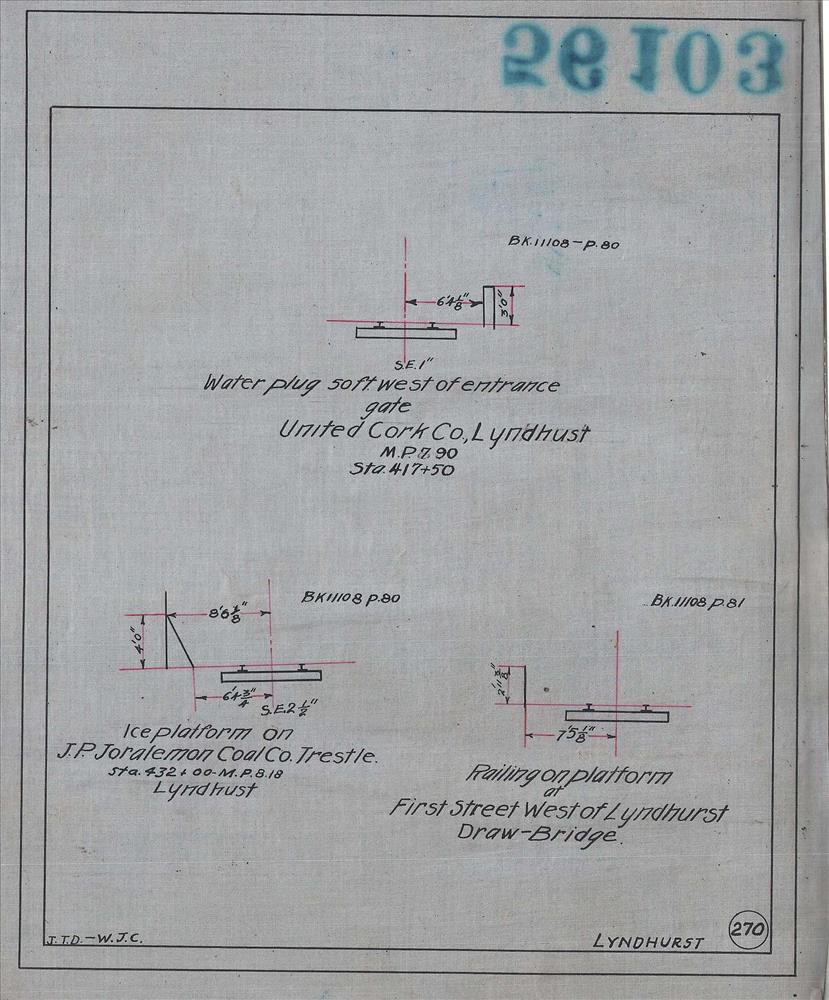 56103
BK.11108-P.80
6'4 1/8"
3'0"
S.E.1"
Water plug 50ft.west of entrance
gate
United Cork Co., Lyndhust
M.P.7.90
Sta.417+50
BK11108 P.80
8'6 1/8"
4'0"
6'4 3/4"
S.E.2 1/2"
Ice platform on
J.P. Joralemon Coal Co. Trestle.
Sta.432+00-M.P.8.18
Lyndhust
BK.11108 P.81
2'11 3/8"
7'5 1/8"
Railing on platform
at
First Street West of Lyndhurst
Draw-Bridge.
J.T.D.-W.J.C.
LYNDHURST
270